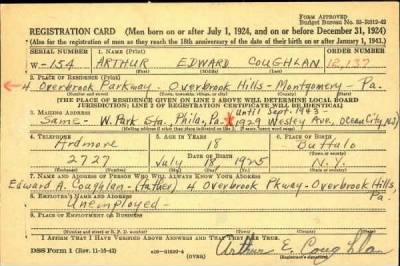 FORM APPROVED
Budget Bureau No. 33-R012-42
REGISTRATION CARD (Men born on or after July 1, 1924, and on or before December 31, 1924)
(Also for the registration of men as they reach the 18th anniversary of the date of their birth on or after January 1, 1943.)
SERIAL NUMBER 1. NAME (Print) ORDER NUMBER
W - 154 ARTHUR EDWARD COUGHLAN 12,137
2. PLACE OF RESIDENCE (Print)
4 Overbrook Parkway - Overbrook Hills - Montgomery - Pa.
(Number and street) (Town, township, village, or city) (County) (State)
[THE PLACE OF RESIDENCE GIVEN ON LINE 2 ABOVE WILL DETERMINE LOCAL BOARD
JURISDICTION; LINE 2 OF REGISTRATION CERTIFICATE WILL BE IDENTICAL]
3. MAILING ADDRESS
Until Sept. 1943 -
Same - W. Park Sta., Phila., Pa. - X 1929 Wesley Ave., Ocean City, N.J.
4. TELEPHONE 5. AGE IN YEARS 6. PLACE OF BIRTH
Ardmore 18 Buffalo
DATE OF BIRTH
2727 July 18 1925 N.Y.
7. NAME AND ADDRESS OF PERSON WHO WILL ALWAYS KNOW YOUR ADDRESS
Edward A. Coughlan - (father) 4 Overbrook Pkway - Overbrook Hills,
Pa.
8. EMPLOYER'S NAME AND ADDRESS
Unemployed -
9. PLACE OF EMPLOYMENT OR BUSINESS
I AFFIRM THAT I HAVE VERIFIED ABOVE ANSWERS AND THAT THEY ARE TRUE.
DSS Form 1 (Rev. 11-16-42) (OVER) Arthur E. Coughlan